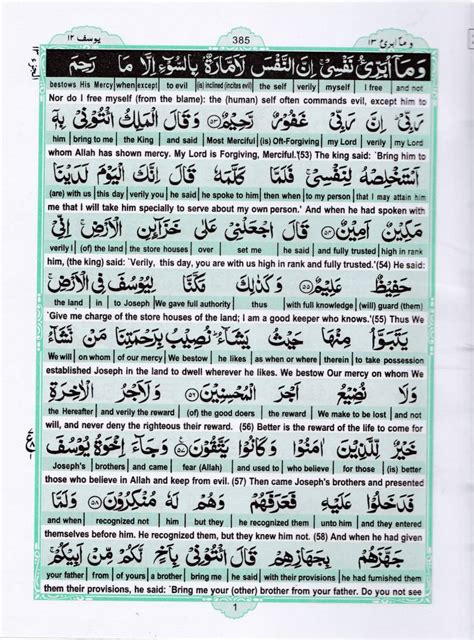 وما ابرئ ١٣ 385 يوسف ١٢
وَمَآ اُبَرِّئُ نَفْسِيْ اِنَّ النَّفْسَ لَاَمَّارَةٌۢ بِالسُّوْٓءِ اِلَّا مَا رَحِمَ
bestows His Mercy | when | except | to evil | (is) inclined (incites evil) | the self | verily | myself | I free | and not
Nor do I free myself (from the blame): the (human) self often commands evil, except him to
رَبِّيْ اِنَّ رَبِّيْ غَفُوْرٌ رَّحِيْمٌ ٥٣ وَقَالَ الْمَلِكُ ائْتُوْنِيْ بِهٖٓ
him | bring to me | the King | and said | Most Merciful | (is) Oft-Forgiving | my Lord | verily | my Lord
whom Allah has shown mercy. My Lord is Forgiving, Merciful.'(53) The king said: `Bring him to
اَسْتَخْلِصْهُ لِنَفْسِيْ فَلَمَّا كَلَّمَهٗ قَالَ اِنَّكَ الْيَوْمَ لَدَيْنَا
(are) with us | this day | verily you | he said | he spoke to him | then when | to my person | that I may attain him
me that I will take him specially to serve about my own person.' And when he had spoken with
مَكِيْنٌ اَمِيْنٌ ٥٤ قَالَ اجْعَلْنِيْ عَلٰى خَزَآئِنِ الْاَرْضِ اِنِّيْ
verily I | (of) the land | the store houses | over | set me | he said | and fully trusted | high in rank
him, (the king) said: `Verily, this day, you are with us high in rank and fully trusted.'(54) He said:
حَفِيْظٌ عَلِيْمٌ ٥٥ وَكَذٰلِكَ مَكَّنَّا لِيُوْسُفَ فِي الْاَرْضِ
the land | in | to Joseph | We gave full authority | thus | with full knowledge | (will) guard (them)
`Give me charge of the store houses of the land; I am a good keeper who knows.'(55) Thus We
يَتَبَوَّاُ مِنْهَا حَيْثُ يَشَآءُ نُصِيْبُ بِرَحْمَتِنَا مَنْ نَّشَآءُ
We will | on whom | of our mercy | We bestow | he likes | as when or where | therein | to take possession
established Joseph in the land to dwell wherever he likes. We bestow Our mercy on whom We
وَلَا نُضِيْعُ اَجْرَ الْمُحْسِنِيْنَ ٥٦ وَلَاَجْرُ الْاٰخِرَةِ
the Hereafter | and verily the reward | (of) the good doers | the reward | We make to be lost | and not
will, and never deny the righteous their reward. (56) Better is the reward of the life to come for
خَيْرٌ لِّلَّذِيْنَ اٰمَنُوْا وَكَانُوْا يَتَّقُوْنَ ٥٧ وَجَآءَ اِخْوَةُ يُوْسُفَ
Joseph's | brothers | and came | fear (Allah) | and used to | who believe | for those | (is) better
those who believe in Allah and keep from evil. (57) Then came Joseph's brothers and presented
فَدَخَلُوْا عَلَيْهِ فَعَرَفَهُمْ وَهُمْ لَهٗ مُنْكِرُوْنَ ٥٨ وَلَمَّا
and when | recognized not | him | but they | he recognized them | unto him | and they entered
themselves before him. He recognized them, but they knew him not. (58) And when he had given
جَهَّزَهُمْ بِجَهَازِهِمْ قَالَ ائْتُوْنِيْ بِاَخٍ لَّكُمْ مِّنْ اَبِيْكُمْ
your father | from | of yours | a brother | bring me | he said | with their provisions | he had furnished them
them their provisions, he said: `Bring me your (other) brother from your father. Do you not see
1